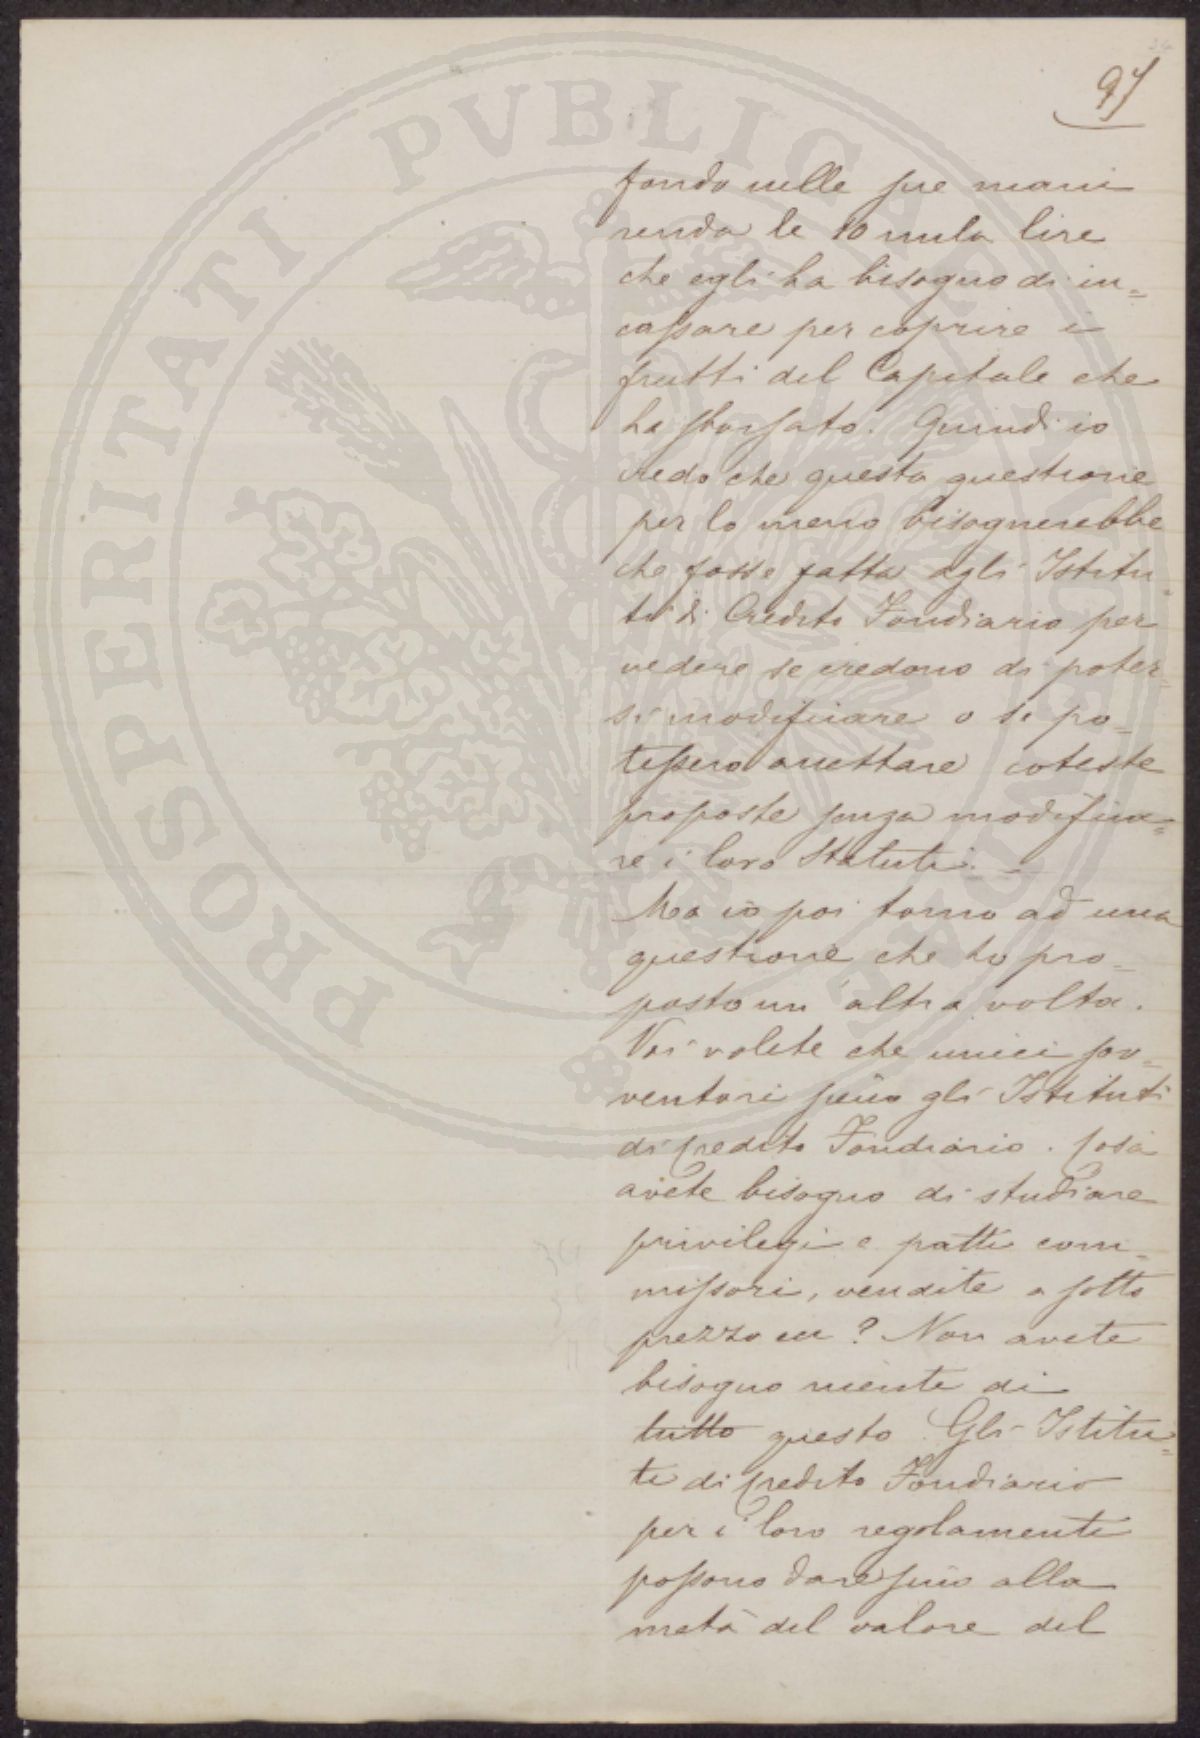 97
fondo nelle sue mani
renda le 10 mila lire
che egli ha bisogno di in=
cassare per coprire i
frutti del Capitale che
ha sborsato. Quindi io
credo che questa questione
per lo meno bisognerebbe
che fosse fatta agli Istitu=
ti di Credito Fondiario per
vedere se credono di poter=
si modificare o se po=
tessero accettare coteste
proposte senza modifica=
re i loro Statuti. —
Ma io poi torno ad una
questione che ho pro=
posto un'altra volta.
Voi volete che unici sov=
ventori siano gli Istituti
di Credito Fondiario. Cosa
avete bisogno di studiare
privilegi e patti com=
missori, vendite a sotto
prezzo ecc? Non avete
bisogno niente di
tutto questo. Gli Istitu=
ti di Credito Fondiario
per i loro regolamenti
possono dare sino alla
metà del valore del
PROSPERITATI PVBLICAE